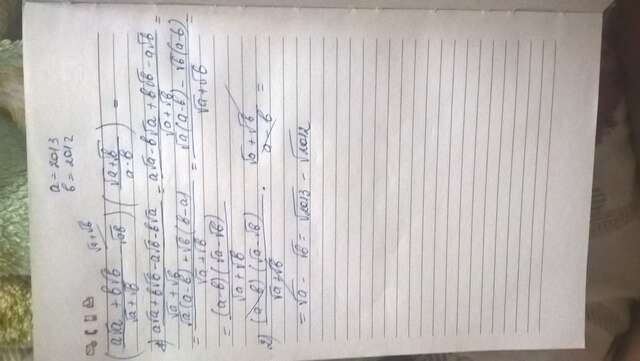 a = 2013
b = 2012
(a√a + b√b / √a + √b - √ab) (√a + √b / a - b) =
1) a√a + b√b - a√b - b√a / √a + √b = a√a - b√a + b√b - a√b / √a + √b =
= √a(a-b) + √b(b-a) / √a + √b = √a(a-b) - √b(a-b) / √a + √b =
= (a-b)(√a - √b) / √a + √b
2) (a-b)(√a - √b) / √a + √b · √a + √b / a - b =
= √a - √b = √2013 - √2012